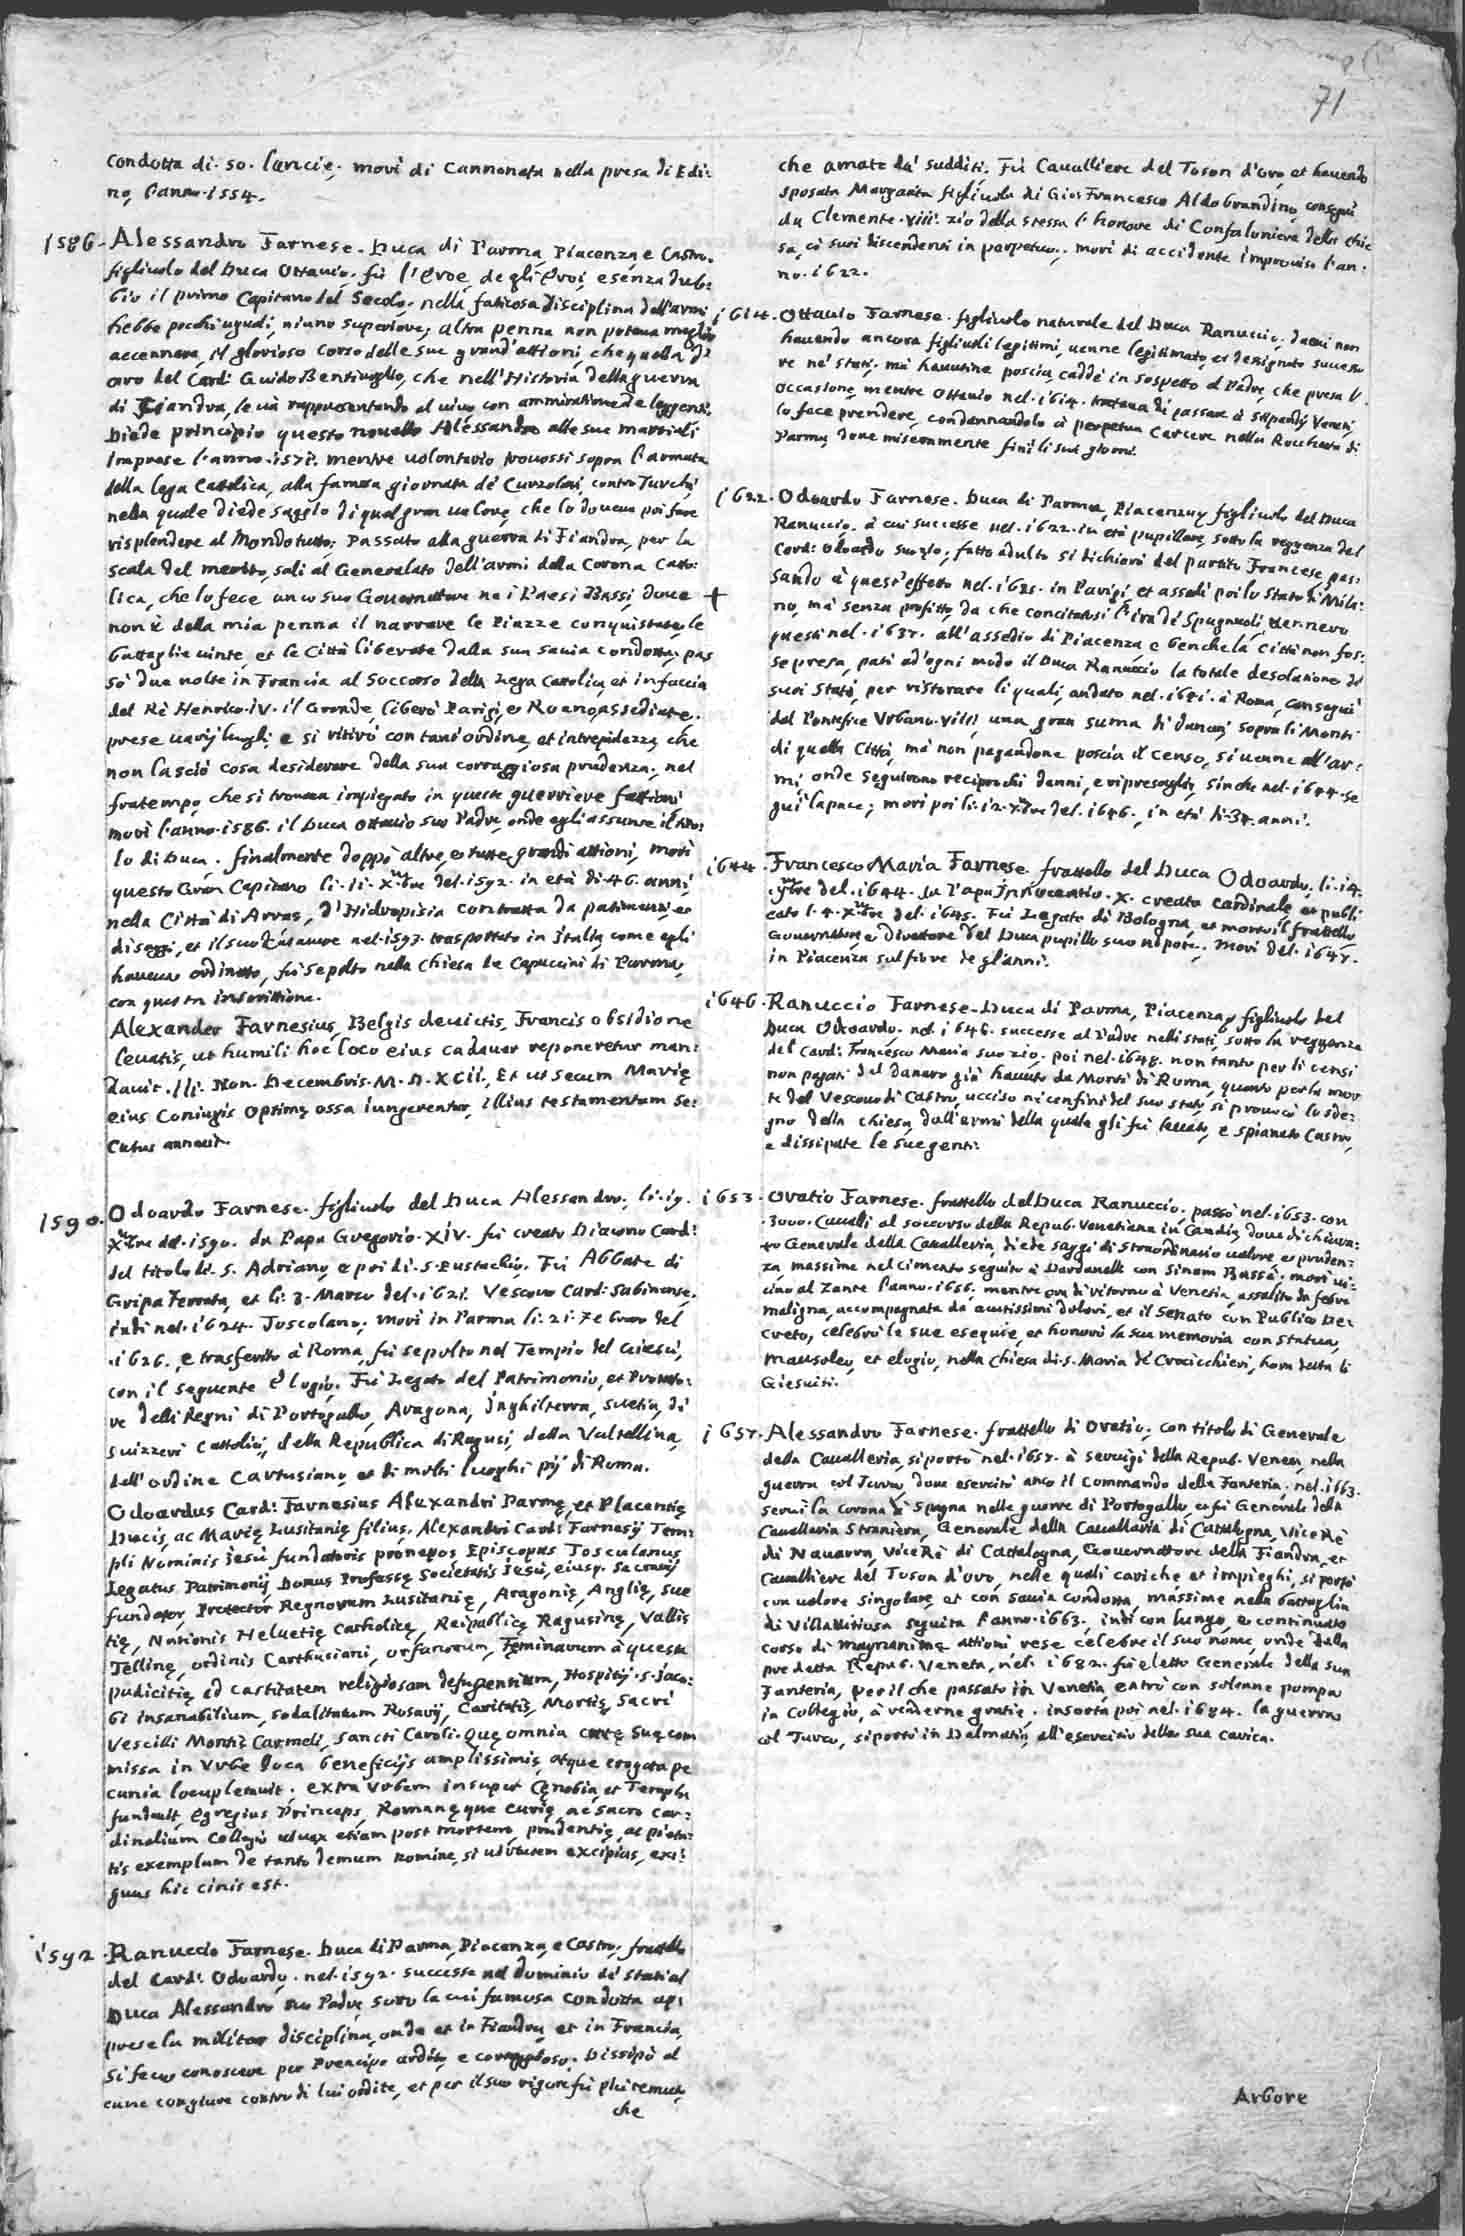 71
condotta di. 50. lancie; morì di Cannonata nella presa di Edi:
no, l'anno. 1554.
1586. Alessandro Farnese. Duca di Parma, Piacenza, e Castro,
figliuolo del Duca Ottavio; fù l'Eroe, degli Eroi, e senza dub:
bio il primo Capitano del Secolo; nella faticosa disciplina dell'armi
hebbe pochi uguali, niuno superiore; altra penna non poteua meglio
accennare, il glorioso corso delle sue grand'attioni, che quella d'
oro del Card: Guido Bentiuoglio, che nell'Historia della guerra
di Fiandra, le uà rappresentando al uiuo con ammiratione de leggenti.
Diede principio questo nouello Alessandro alle sue martiali
Imprese l'anno. 1571. mentre uolontario trouossi sopra l'armata
della lega Cattolica, alla famosa giornata de Curzolari, contro Turchi,
nella quale diede saggio di qual gran ualore, che lo doueua poi fare
risplendere al Mondo tutto; Passato alla guerra di Fiandra, per la
scala del merito, salì al Generalato dell'armi della Corona Catto:
lica, che lo fece anco suo Gouernatore ne i Paesi Bassi, doue +
non è della mia penna il narrare le Piazze conquistate, le
battaglie uinte, et le Città liberate dalla sua sauia condotta; pas
sò due uolte in Francia al soccorso della Lega Cattolica, et in faccia
del Rè Henrico. IV. il Grande, liberò Parigi, e Roano, assediate,
prese uarij luoghi, e si ritirò con tant'ordine, et intrepidezza, che
non lasciò cosa desiderare della sua corraggiosa prudenza; nel
fratempo, che si trouaua impiegato in queste guerriere fattioni
morì l'anno. 1586. il Duca Ottauio suo Padre, onde egli assunse il tito:
lo di Duca. finalmente doppò altre, et tutte grandi attioni, morì
questo Gran Capitano li. 11. Xmbre del. 1592. in età di. 46. anni,
nella Città di Arras, d'Hidropisia contratta da patimenti, et
disaggi, et il suo Cadauere nel. 1593. trasportato in Italia, come egli
haueua ordinato, fù sepolto nella Chiesa de Capuccini di Parma,
con questa inscrittione.
Alexander Farnesius, Belgis deuictis, Francis obsidione
leuatis, ut humili hoc loco eius cadauer reponeretur man:
dauit. III. Non. Decembris. M. D. XCII., Et ut secum Marię
eius Coniugis optimę ossa iungerentur, illius testamentum se:
cutus annuit.
1590. Odoardo Farnese. figliuolo del Duca Alessandro; li. 19.
Xmbre del. 1590. da Papa Gregorio. XIV. fù creato Diacono Card:
del titolo di. S. Adriano, e poi di. S. Eustachio. Fù Abbate di
Gripa Ferrata, et li. 3. Marzo del. 1621. Vescouo Card: Sabinense,
indi nel. 1624. Toscolano; morì in Parma li. 21. Febraro del
.1626., e trasferito à Roma, fù sepolto nel Tempio del Giesù,
con il seguente Elogio. Fù Legato del Patrimonio, et Protetto:
re delli Regni di Portogallo, Aragona, Inghilterra, Suetia, de
Suizzeri Cattolici, della Republica di Ragusi, della Valtellina,
dell'ordine Cartusiano, et di molti luoghi pij di Roma.
Odoardus Card: Farnesius Alexandri Parmę, et Placentię
Ducis, ac Marię Lusitanię filius, Alexandri Card: Farnesij Tem:
pli Nominis Iesù fundatoris pronepos Episcopus Tosculanus
Legatus Patrimonij Domus Professę Societatis Iesù, eiusq. Sacrarij
fundator, Protector Regnorum Lusitanię, Aragonię, Anglię, Sue
tię, Nationis Heluetię Catholicę, Reipublicę Ragusinę, Vallis
Tellinę, ordinis Carthusiani, orfanorum, Fęminarum à questu
pudicitię ad castitatem religiosam defugentium, Hospitij. S. Jaco:
bi insanabilium, sodalitatum Rosarij, Caritatis, Mortis, Sacri
Vescilli Montis Carmeli, Sancti Caroli. Quę omnia curę suę com
missa in Vrbe loca beneficijs amplissimis, atque erogata pe
cunia locupletauit; extra Vrbem insuper Cęnobia, et Templa
fundauit, Egregius Princeps, Romanęque curię, ac sacro Car:
dinalium Collegio uiuax etiam post mortem, prudentię, ac pieta:
tis exemplum de tanto demum nomine, si uirtutem excipias, exi:
guus hic cinis est.
1592. Ranuccio Farnese. Duca di Parma, Piacenza, e Castro, fratello
del Card: Odoardo; nel. 1592. successe nel dominio de stati al
Duca Alessandro suo Padre, sotto la cui famosa condotta ap:
prese la militar disciplina, onde et in Fiandra, et in Francia,
si fece conoscere per Prencipe ardito, e corraggioso. Dissipò al
cune congiure contro di lui ordite, et per il suo rigore fù più temuto,
che
che amato da' sudditi. Fù Caualliere del Toson d'oro, et hauendo
sposata Margarita figliuola di Gio: Francesco Aldobrandino, conseguì
da Clemente. VIII. zio della stessa l'honore di Confaloniere della chie
sa, à suoi discendenti in perpetuo; morì di accidente improuiso l'an:
no. 1622.
1614. Ottauio Farnese. figliuolo naturale del Duca Ranuccio; da cui non
hauendo ancora figliuoli legitimi, uenne legitimato, et designato successo
re ne' stati; mà hauutine poscia, cadde in sospetto al Padre, che presa l'
occasione, mentre Ottauio nel. 1614. trattaua di passare à stipendij Veneti,
lo fece prendere, condannandolo à perpetua Carcere nella Rocchetta di
Parma, doue miseramente finì li suoi giorni.
1622. Odoardo Farnese. Duca di Parma, Piacenza, figliuolo del Duca
Ranuccio, à cui successe nel. 1622. in età pupillare, sotto la reggenza del
Card: Odoardo suo zio; fatto adulto si dichiarò del partito Francese, pas:
sando à quest'effetto nel. 1635. in Parigi, et assalì poi lo Stato di Mila:
no, mà senza profitto, da che concitatasi l'ira de' Spagnuoli, uennero
questi nel. 1637. all'assedio di Piacenza, e benche la Città non fos:
se presa, patì ad'ogni modo il Duca Ranuccio la totale desolatione de
suoi stati, per ristorare li quali, andato nel. 1641. à Roma, conseguì
dal Pontefice Vrbano. VIII. una gran suma di danari, sopra li Monti
di quella Città, mà non pagandone poscia il censo, si uenne all'ar:
mi, onde seguirono reciprochi danni, e ripresaglie, sinche nel. 1644. se
guì la pace; morì poi li. 12. 7mbre del. 1646., in età di. 34. anni.
1644. Francesco Maria Farnese. fratello del Duca Odoardo; li. 14.
9mbre del. 1644. da Papa Innocentio. X. creato cardinale, et publi
cato l. 4. Xmbre del. 1645. Fù Legato di Bologna, et morto il fratello
Gouernatore, e Direttore del Duca pupillo suo nipote; morì del. 1647.
in Piacenza sul fiore de gl'anni.
1646. Ranuccio Farnese. Duca di Parma, Piacenza, figliuolo del
Duca Odoardo; nel. 1646. successe al Padre nelli stati, sotto la reggenza
del Card: Francesco Maria suo zio; poi nel. 1648. non tanto per li censi
non pagati del danaro già hauuto da Monti di Roma, quanto per la mor
te del Vescouo di Castro, ucciso ne i confini del suo stato, si prouocò lo sde:
gno della chiesa, dall'armi della quale gli fù leuato, e spianato Castro,
e dissipate le sue genti.
1653. Oratio Farnese. fratello del Duca Ranuccio; passò nel. 1653. con
.3000. Caualli al soccorso della Repub. Venetiana in Candia, doue dichiara:
to Generale della Caualleria, diede saggi di straordinario ualore, et pruden:
za, massime nel cimento seguito à Dardanelli con Sinam Bassà; morì ui:
cino al Zante l'anno. 1656, mentre era di ritorno à Venetia, assalito da febre
maligna, accompagnata da acutissimi dolori, et il Senato con Publico De:
creto, celebrò le sue esequie, et honorò la sua memoria con statua,
mausoleo, et elogio, nella Chiesa di. S. Maria de' Crocicchieri, hora detta li
Giesuiti.
1657. Alessandro Farnese. fratello di Oratio; con titolo di Generale
della Caualleria, si portò nel. 1657. à seruigi della Repub. Veneta, nella
guerra col Turco, doue esercitò anco il commando della Fanteria; nel. 1663.
seruì la corona di Spagna nelle guerre di Portogallo, et fù Generale della
Caualleria Straniera, Generale della Caualleria di Catalogna, Vice Rè
di Nauarra, Vice Rè di Cattalogna, Gouernattore della Fiandra, et
Caualliere del Toson d'oro, nelle quali cariche, et impieghi, si portò
con ualore singolare, et con sauia condotta, massime nella battaglia
di Villauitiosa seguita l'anno. 1663, indi con lungo, et continuato
corso di magnanime attioni rese celebre il suo nome, onde dalla
predetta Repub. Veneta, nel. 1682. fù eletto Generale della sua
Fanteria, per il che passato in Venetia, entrò con solenne pompa
in Collegio, à renderne gratie; insorta poi nel. 1684. la guerra
col Turco, si portò in Dalmatia, all'esercitio della sua carica.
Arbore